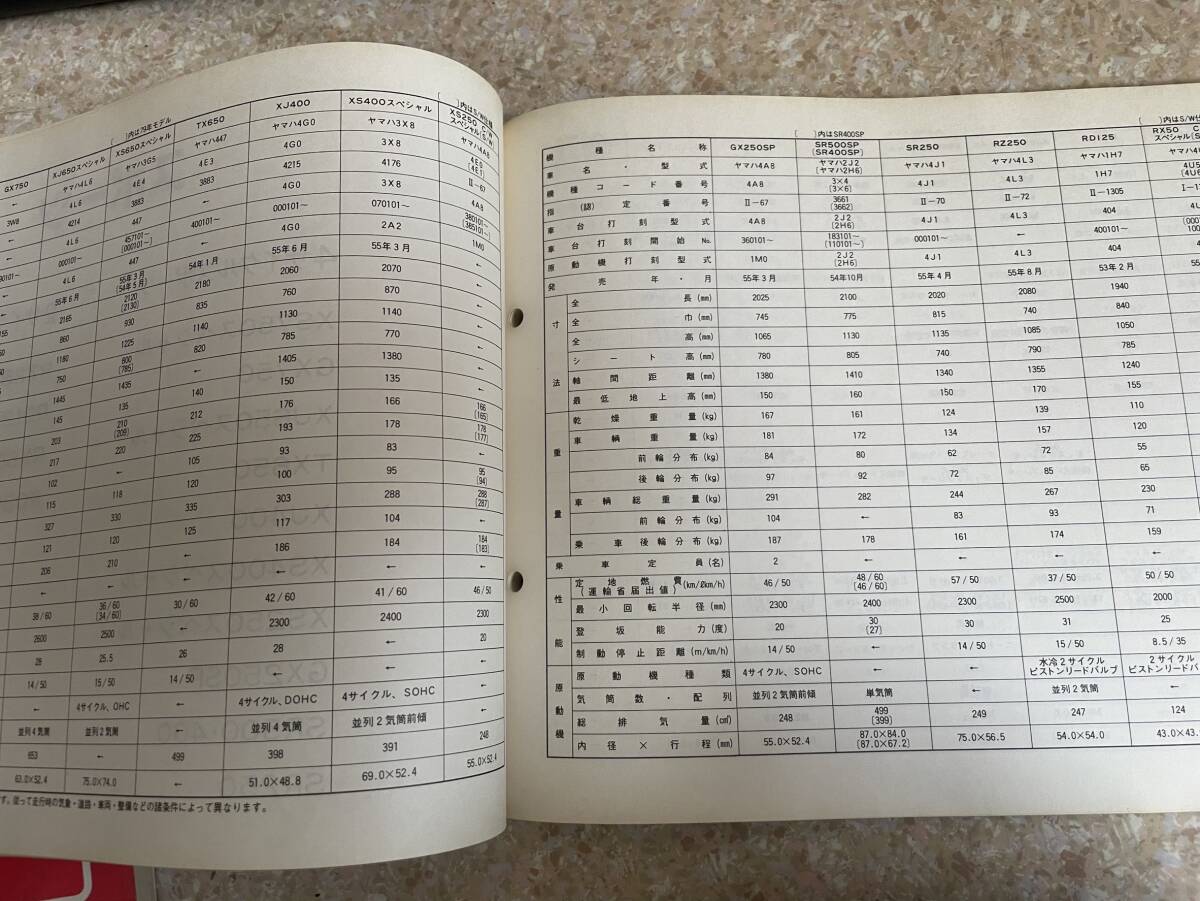 〔 〕内は79年モデル 〔 〕内はS/W仕様
GX750 XJ650スペシャル XS650スペシャル TX650 XJ400 XS400スペシャル XS250 C/W スペシャル(S/W)
← ヤマハ4L6 ヤマハ3G5 ヤマハ447 ヤマハ4G0 ヤマハ3X8 ヤマハ4A8
3W8 4L6 4E4 4E3 4G0 3X8 4E0 (4E1)
← 4214 3883 3883 4215 4176 Ⅱ−67
← 4L6 447 ← 4G0 3X8 4A8
000101〜 457101〜 (000101〜) 400101〜 000101〜 070101〜 380101〜 (385101〜)
← 4L6 447 ← 4G0 2A2 1M0
55年6月 55年3月 (54年5月) 54年1月 55年6月 55年3月
2165 2120 (2130) 2180 2060 2070
860 930 835 760 870
1180 1225 1140 1130 1140
750 800 (785) 820 785 770
1445 1435 1405 1380
145 135 140 150 135
203 210 (209) 212 176 166 166 (165)
217 220 225 193 178 178 (177)
102 ← 105 93 83
115 118 120 100 95 95 (94)
327 330 335 303 288 288 (287)
121 120 125 117 104 ←
206 210 ← 186 184 184 (183)
← ← ← ←
38/60 36/60 (34/60) 30/60 42/60 41/60 46/50
2600 2500 ← 2300 2400 2300
28 25.5 26 28 ← 20
14/50 15/50 14/50 ← ← ←
← 4サイクル、OHC ← 4サイクル、DOHC 4サイクル、SOHC ←
並列4気筒 並列2気筒 ← 並列4気筒 並列2気筒前傾 ←
653 ← 499 398 391 248
63.0×52.4 75.0×74.0 ← 51.0×48.8 69.0×52.4 55.0×52.4
す。従って走行時の気象・道路・車両・整備などの諸条件によって異なります。
〔 〕内はSR400SP 〔 〕内はS/W仕
機種名称 GX250SP SR500SP (SR400SP) SR250 RZ250 RD125 RX50 スペシャル
車名・型式 ヤマハ4A8 ヤマハ2J2 (ヤマハ2H6) ヤマハ4J1 ヤマハ4L3 ヤマハ1H7
機種コード番号 4A8 3×4 (3×6) 4J1 4L3 1H7
指(認)定番号 Ⅱ−67 3661 (3662) Ⅱ−70 Ⅱ−72 Ⅱ−1305
車台打刻型式 4A8 2J2 (2H6) 4J1 4L3 404
車台打刻開始No. 360101〜 183101〜 (110101〜) 000101〜 ← 400101〜
原動機打刻型式 1M0 2J2 (2H6) 4J1 4L3 404
発売年・月 55年3月 54年10月 55年4月 55年8月 53年2月
寸法
全長(mm) 2025 2100 2020 2080 1940
全巾(mm) 745 775 815 740 840
全高(mm) 1065 1130 1135 1085 1050
シート高(mm) 780 805 740 790 785
軸間距離(mm) 1380 1410 1340 1355 1240
最低地上高(mm) 150 160 150 170 155
重量
乾燥重量(kg) 167 161 124 139 110
車輌重量(kg) 181 172 134 157 120
前輪分布(kg) 84 80 62 72 55
後輪分布(kg) 97 92 72 85 65
車輌総重量(kg) 291 282 244 267 230
前輪分布(kg) 104 ← 83 93 71
乗車後輪分布(kg) 187 178 161 174 159
乗車定員(名) 2 ← ← ← ←
性能
定地燃費(運輸省届出値)(km/ℓkm/h) 46/50 48/60 (46/60) 57/50 37/50 50/50
最小回転半径(mm) 2300 2400 2300 2500 2000
登坂能力(度) 20 30 (27) 30 31 25
制動停止距離(m/km/h) 14/50 ← 14/50 15/50 8.5/35
原動機
原動機種類 4サイクル、SOHC ← ← 水冷2サイクル ピストンリードバルブ 2サイクル ピストンリードバ
気筒数・配列 並列2気筒前傾 単気筒 ← 並列2気筒 ←
総排気量(㎤) 248 499 (399) 249 247 124
内径×行程(mm) 55.0×52.4 87.0×84.0 (87.0×67.2) 75.0×56.5 54.0×54.0 43.0×43.